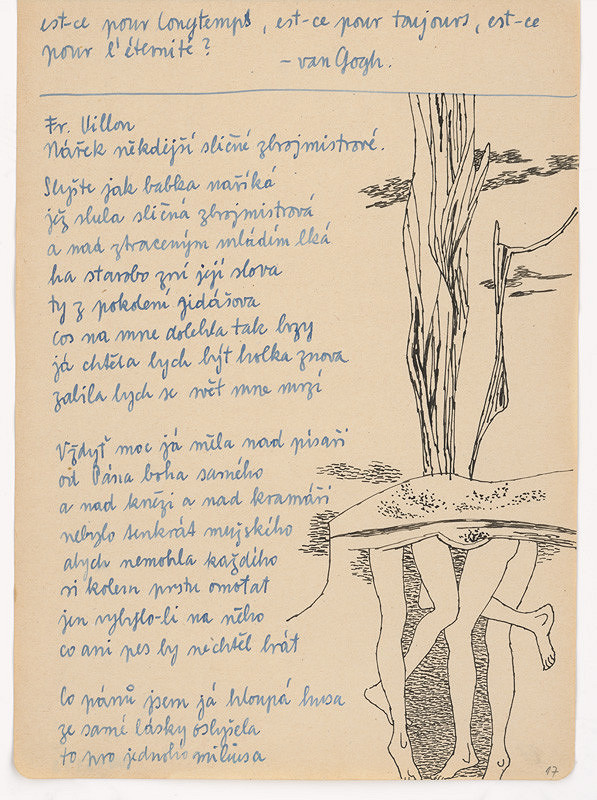 est-ce pour longtemps, est-ce pour toujours, est-ce
pour l'éternité?
- van Gogh.
Fr. Villon
Nářek někdější sličné zbrojmistrové.
Slyšte jak babka naříká
jěž slula sličná zbrojmistrová
a nad ztraceným mládím lká
ha starobo zní její slova
ty z pokolení jidášova
cos na mne dolehla tak brzy
já chtěla bych být holka znova
zabila bych se svět mne mrzí
Vždyť moc já měla nad písaři
od Pána boha samého
a nad knězi a nad kramáři
nebylo tenkrát mužského
abych nemohla každého
si kolem prstu omotat
jen vybylo-li na něho
co ani pes by nechtěl brát
Co pánů jsem já hloupá husa
ze samé lásky oslyšela
to pro jednoho milkusa
17